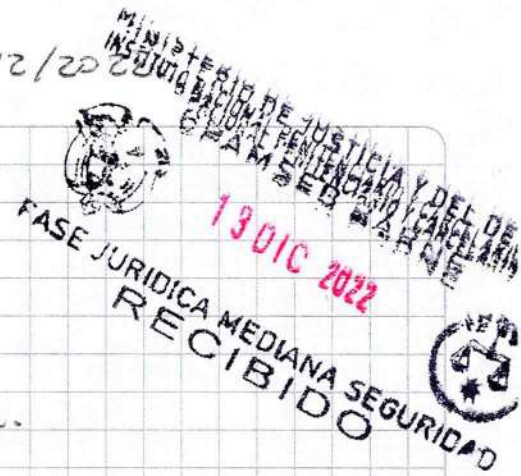 12/2022
MINISTERIO DE JUSTICIA Y DEL DE
INSTITUTO NACIONAL PENITENCIARIO Y CARCELARIO
CPAMSEB BARNE
13 DIC 2022
FASE JURIDICA MEDIANA SEGURIDAD
RECIBIDO